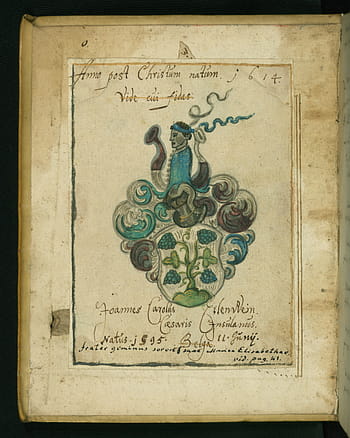 Anno post Christum natum 1614.
Vide cui fidas.
Joannes Carolus
Cæsaris Insulanus.
Natus 1595. Belga 11. Junij.
frater geminus sororis meae Mariae Elisabethae
vid. pag. 41.